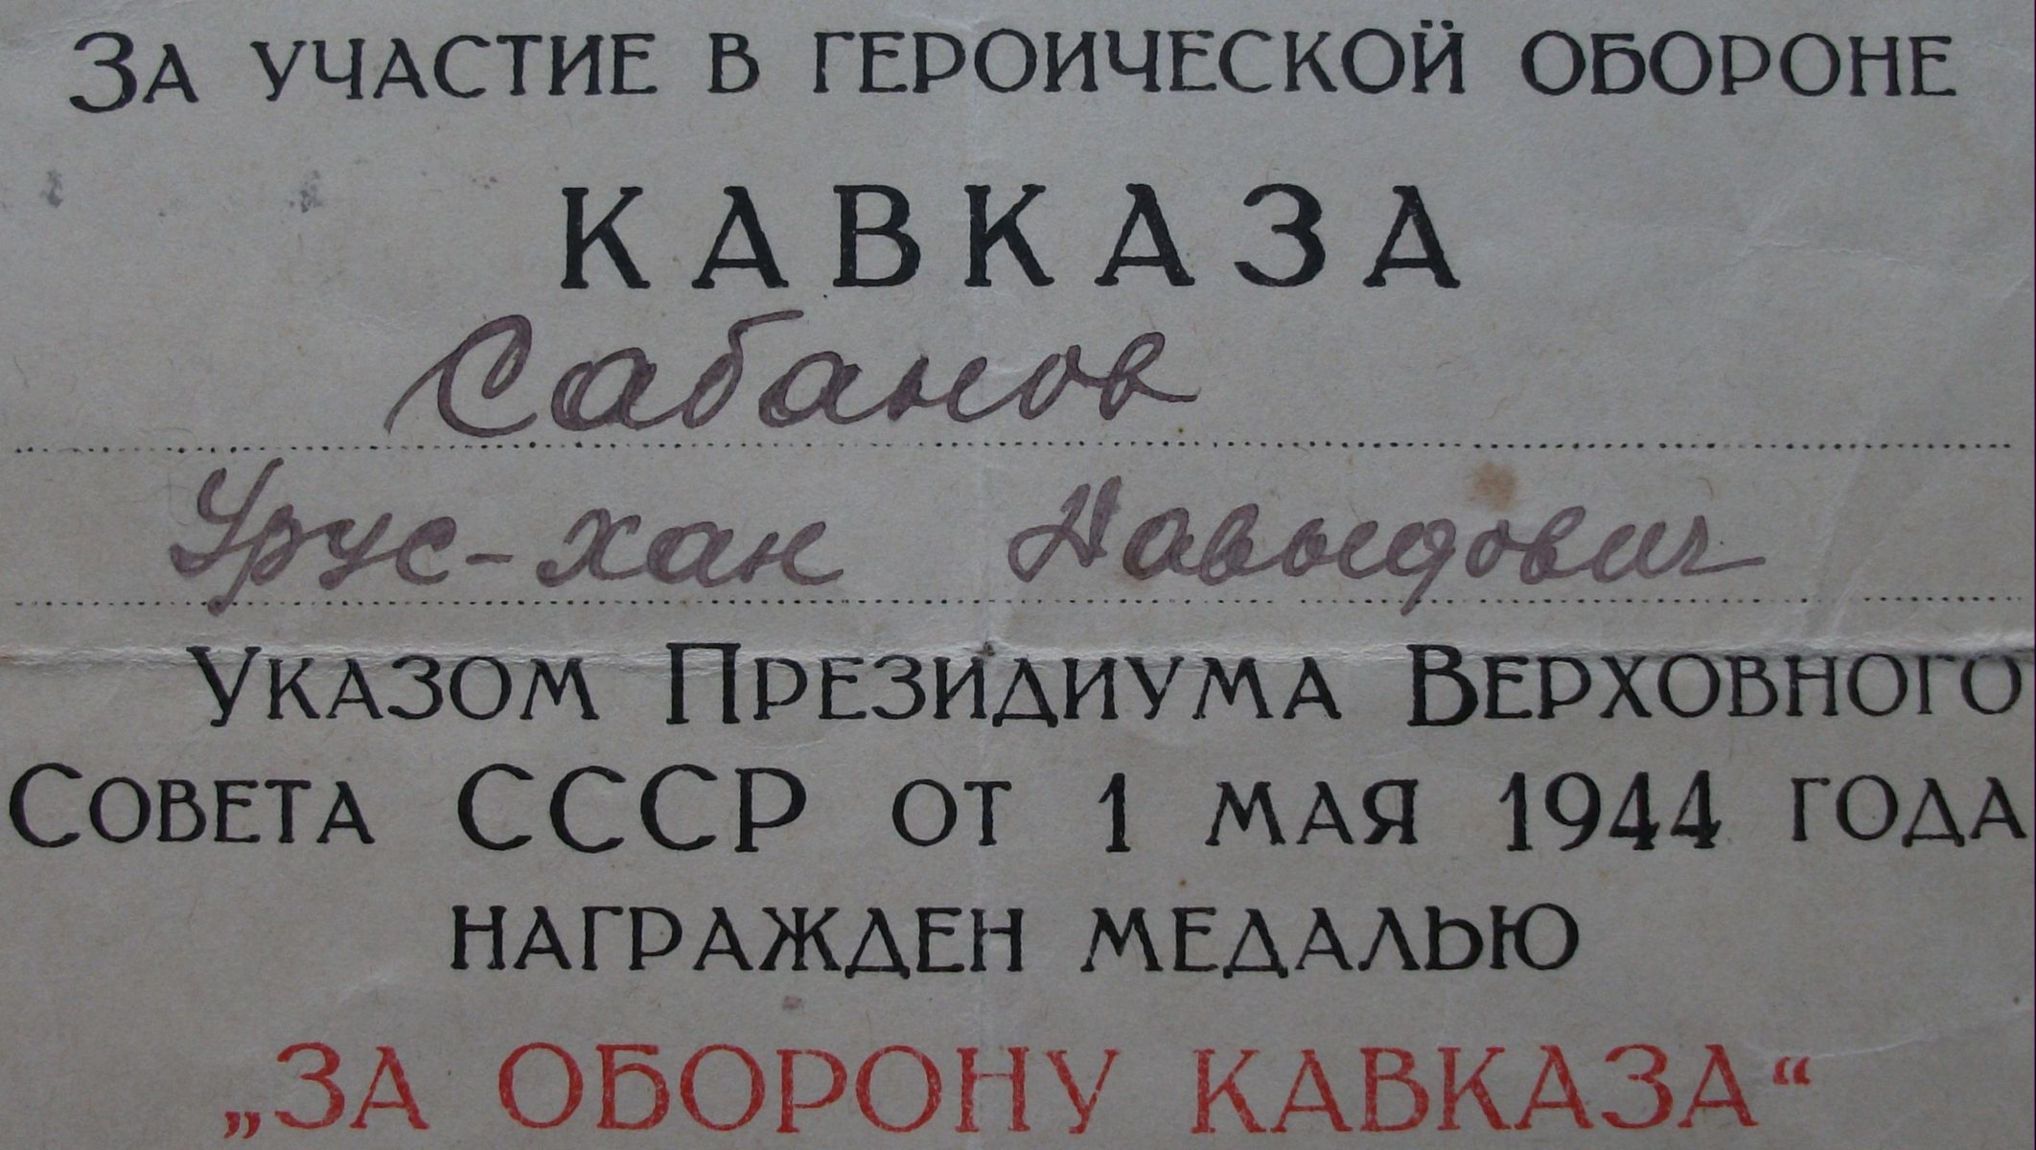 За участие в героической обороне
КАВКАЗА
Сабанов
Урус-хан Навыдович
Указом Президиума Верховного
Совета СССР от 1 мая 1944 года
награжден медалью
„ЗА ОБОРОНУ КАВКАЗА“